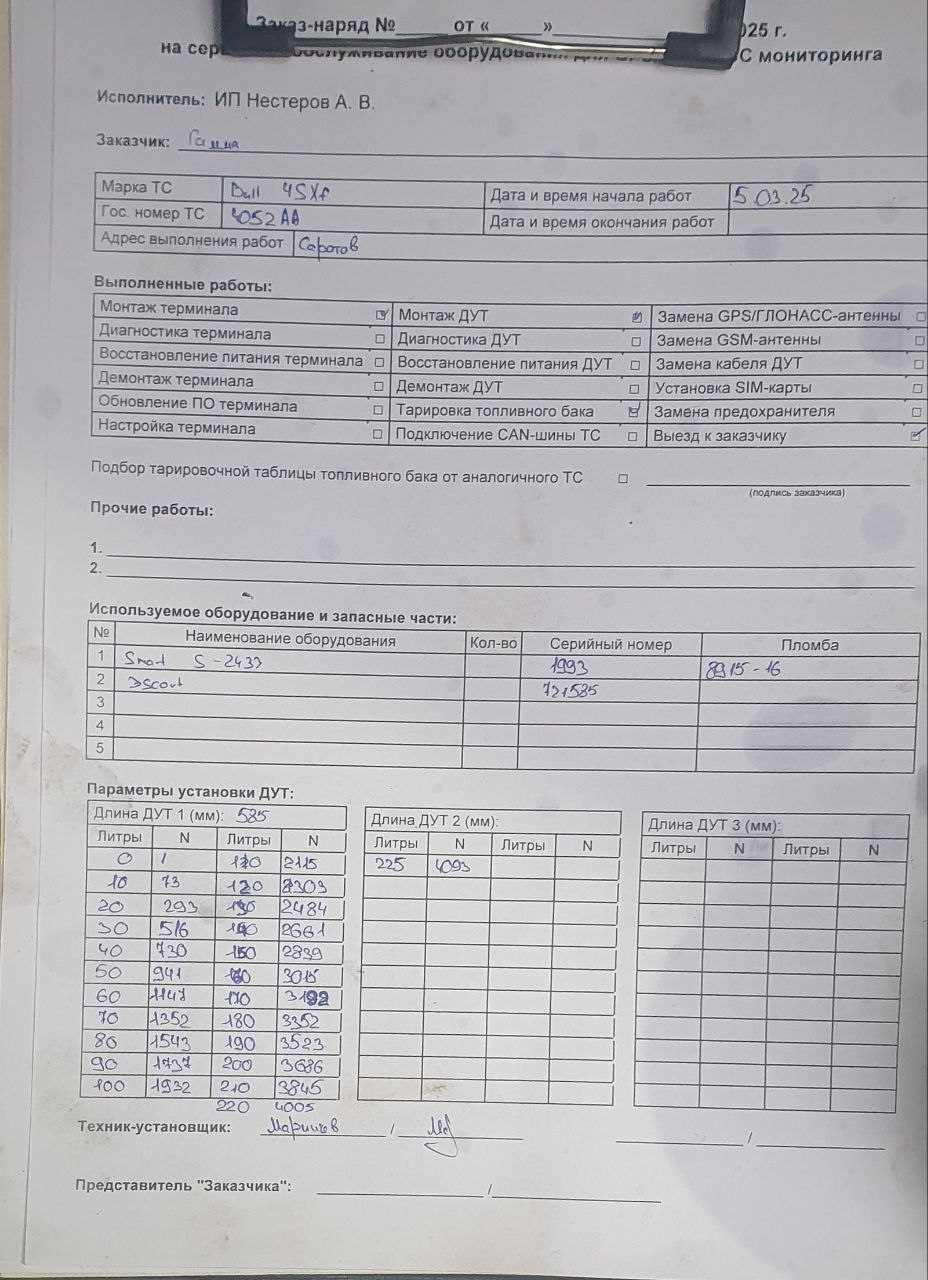 Заказ-наряд № от « » 025 г.
на сер обслуживание оборудован С мониторинга
Исполнитель: ИП Нестеров А. В.
Заказчик: Гамма
Марка ТС Дата и время начала работ 5.03.25
Гос. номер ТС 4052 АА Дата и время окончания работ
Адрес выполнения работ Саратов
Выполненные работы:
Монтаж терминала ☑ Монтаж ДУТ ☑ Замена GPS/ГЛОНАСС-антенны ☐
Диагностика терминала ☐ Диагностика ДУТ ☐ Замена GSM-антенны ☐
Восстановление питания терминала ☐ Восстановление питания ДУТ ☐ Замена кабеля ДУТ ☐
Демонтаж терминала ☐ Демонтаж ДУТ ☐ Установка SIM-карты ☐
Обновление ПО терминала ☐ Тарировка топливного бака ☑ Замена предохранителя ☐
Настройка терминала ☐ Подключение CAN-шины ТС ☐ Выезд к заказчику ☑
Подбор тарировочной таблицы топливного бака от аналогичного ТС ☐
(подпись заказчика)
Прочие работы:
1.
2.
Используемое оборудование и запасные части:
№ Наименование оборудования Кол-во Серийный номер Пломба
1 Smart S-2433 1993 8915-16
2 721585
3
4
5
Параметры установки ДУТ:
Длина ДУТ 1 (мм): 585 Длина ДУТ 2 (мм): Длина ДУТ 3 (мм):
Литры N Литры N Литры N Литры N Литры N Литры N
0 1 110 2115 225 4093
10 73 120 2303
20 293 130 2484
30 516 140 2661
40 730 150 2839
50 941 160 3015
60 1147 170 3192
70 1352 180 3352
80 1543 190 3523
90 1737 200 3686
100 1932 210 3845
220 4005
Техник-установщик: Маринов / /
Представитель "Заказчика": /